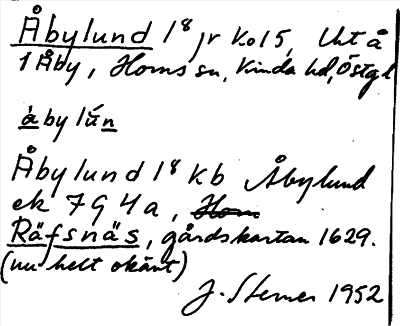 Åbylund 1⁸ jr k.o 15, Uht å
1 Åby, Horns sn, Kinda hd, Östgl
åbylún
Åbylund 1⁸ kb Åbylund
ek 7 9 4 a, Horn
Räfsnäs, gårdskartan 1629.
(nu helt okänt)
J. Sterner 1952